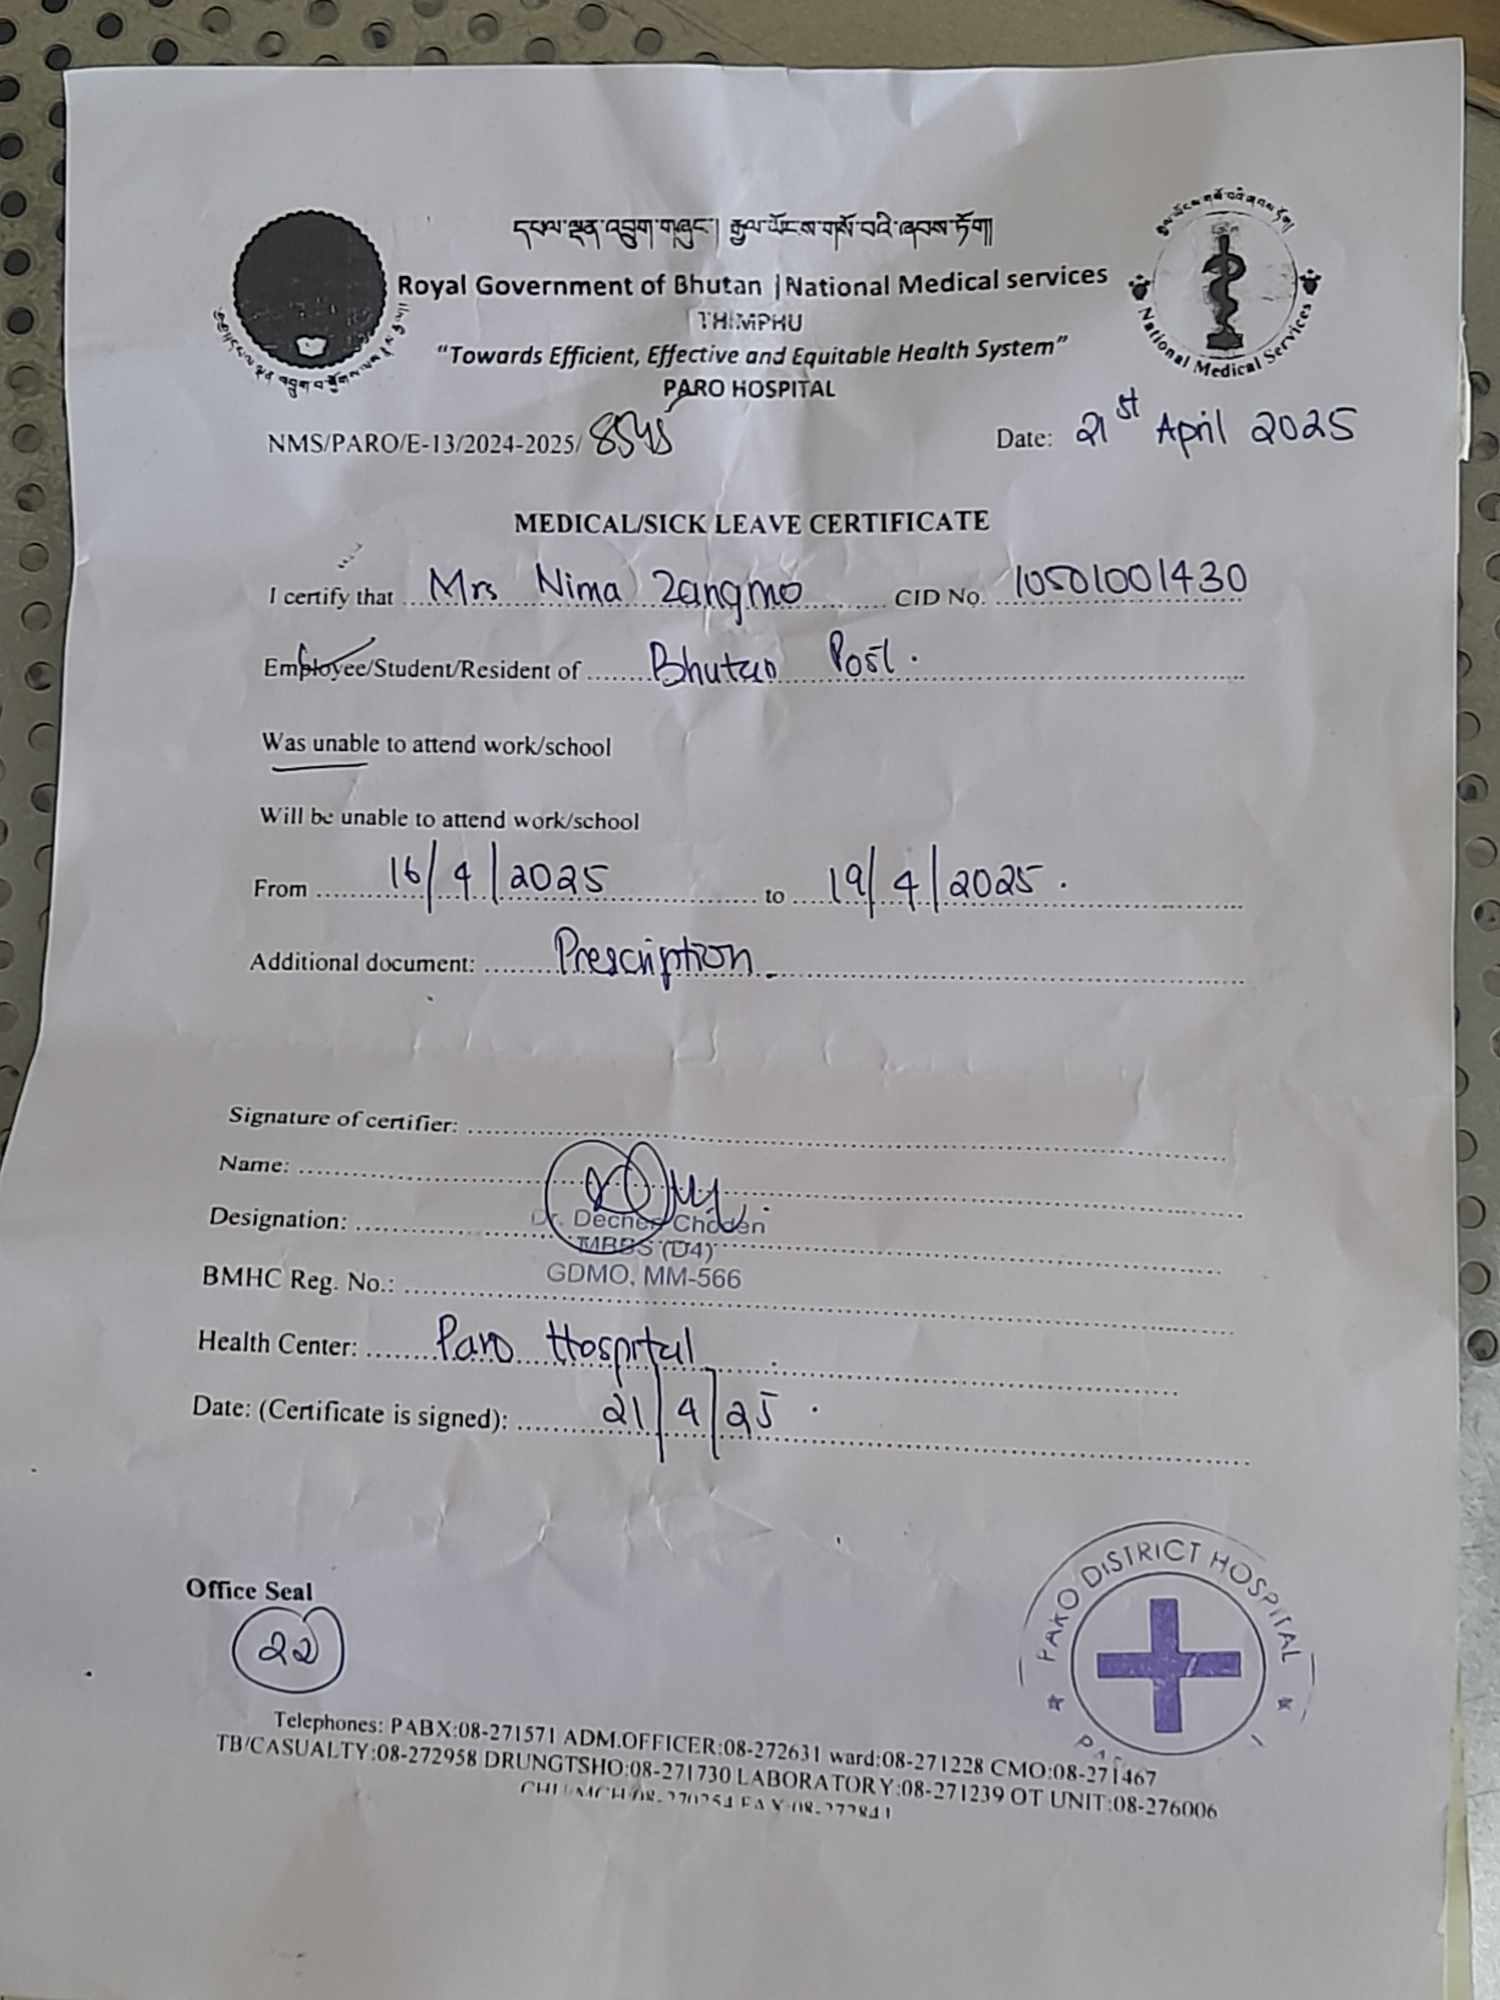 དཔལ་ལྡན་འབྲུག་གཞུང་། རྒྱལ་ཡོངས་གསོ་བའི་ཞབས་ཏོག།
Royal Government of Bhutan |National Medical services
THIMPHU
"Towards Efficient, Effective and Equitable Health System"
PARO HOSPITAL
National Medical Services
NMS/PARO/E-13/2024-2025/ 8545
Date: 21st April 2025
MEDICAL/SICK LEAVE CERTIFICATE
I certify that Mrs Nima Zangmo CID No. 10501001430
Employee/Student/Resident of Bhutan Post.
Was unable to attend work/school
Will be unable to attend work/school
From 16/4/2025 to 19/4/2025.
Additional document: Prescription
Signature of certifier:
Name:
Designation: Dr. Dechen Choden
MBBS (D4)
BMHC Reg. No.: GDMO, MM-566
Health Center: Paro Hospital
Date: (Certificate is signed): 21/4/25.
Office Seal
22
PARO DISTRICT HOSPITAL
Telephones: PABX:08-271571 ADM.OFFICER:08-272631 ward:08-271228 CMO:08-271467
TB/CASUALTY:08-272958 DRUNGTSHO:08-271730 LABORATORY:08-271239 OT UNIT:08-276006
FAX:08-272841